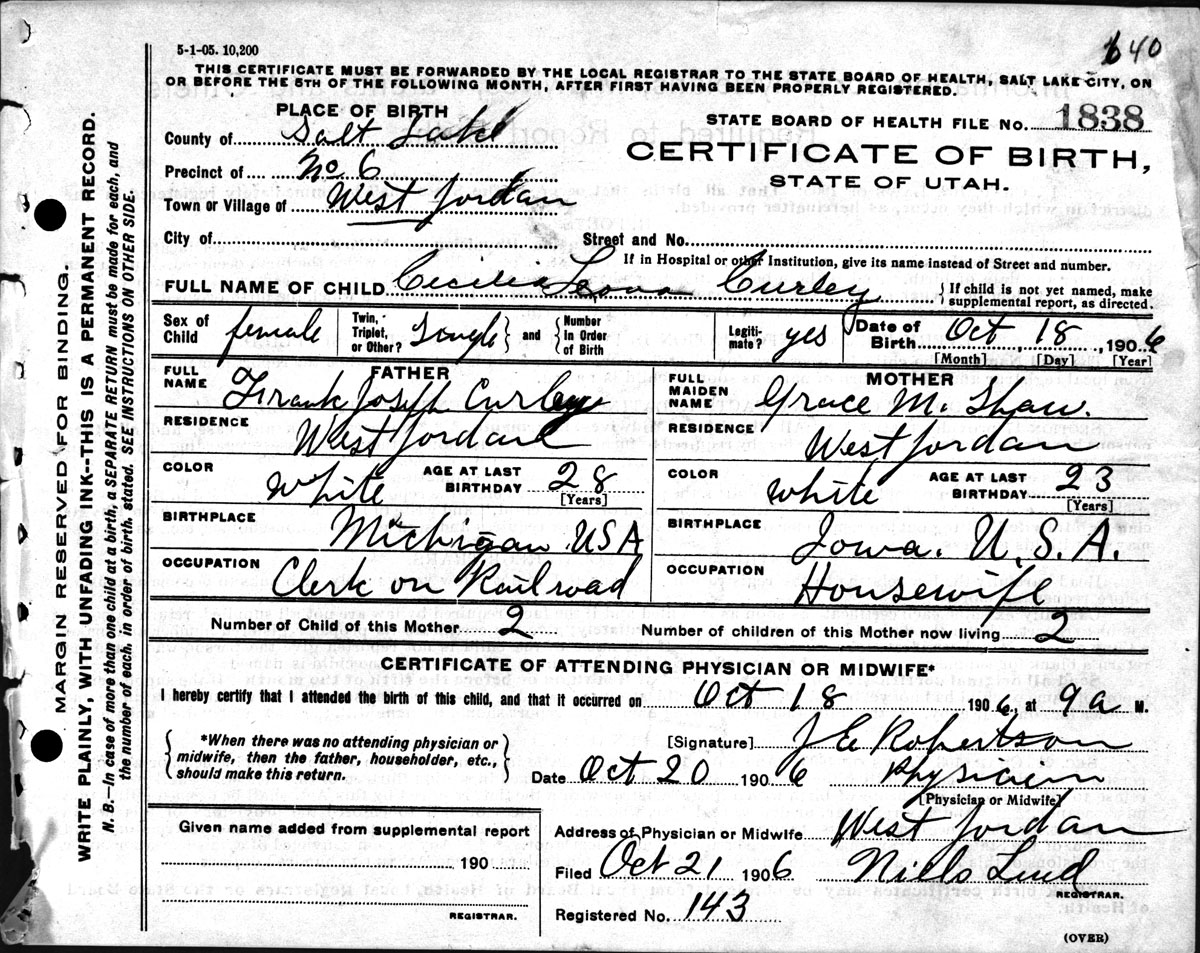 5-1-05. 10,200
640
THIS CERTIFICATE MUST BE FORWARDED BY THE LOCAL REGISTRAR TO THE STATE BOARD OF HEALTH, SALT LAKE CITY, ON
OR BEFORE THE 5TH OF THE FOLLOWING MONTH, AFTER FIRST HAVING BEEN PROPERLY REGISTERED.
PLACE OF BIRTH
County of Salt Lake
Precinct of No 6
Town or Village of West Jordan
STATE BOARD OF HEALTH FILE No. 1838
CERTIFICATE OF BIRTH,
STATE OF UTAH.
City of Street and No.
If in Hospital or other Institution, give its name instead of Street and number.
FULL NAME OF CHILD Cecilia Leona Curley { If child is not yet named, make
supplemental report, as directed.
Sex of Child female Twin, Triplet, or Other? Single } and { Number In Order of Birth Legiti-mate? yes Date of Birth Oct 18, 1906
[Month] [Day] [Year]
FATHER
FULL NAME Frank Joseph Curley
RESIDENCE West Jordan
COLOR White AGE AT LAST BIRTHDAY 28
[Years]
BIRTHPLACE Michigan USA
OCCUPATION Clerk on Railroad
MOTHER
FULL MAIDEN NAME Grace M. Shaw.
RESIDENCE West Jordan
COLOR White AGE AT LAST BIRTHDAY 23
[Years]
BIRTHPLACE Iowa. U. S. A.
OCCUPATION Housewife
Number of Child of this Mother 2 Number of children of this Mother now living 2
CERTIFICATE OF ATTENDING PHYSICIAN OR MIDWIFE*
I hereby certify that I attended the birth of this child, and that it occurred on Oct 18 1906, at 9 a M.
{ *When there was no attending physician or
midwife, then the father, householder, etc.,
should make this return. }
[Signature] J E Robertson
Date Oct 20 1906 Physician
[Physician or Midwife]
Given name added from supplemental report
190
REGISTRAR.
Address of Physician or Midwife West Jordan
Filed Oct 21 1906 Niels Lind
REGISTRAR.
Registered No. 143
(OVER)
MARGIN RESERVED FOR BINDING.
WRITE PLAINLY, WITH UNFADING INK--THIS IS A PERMANENT RECORD.
N. B.—In case of more than one child at a birth, a SEPARATE RETURN must be made for each, and
the number of each, in order of birth, stated. SEE INSTRUCTIONS ON OTHER SIDE.